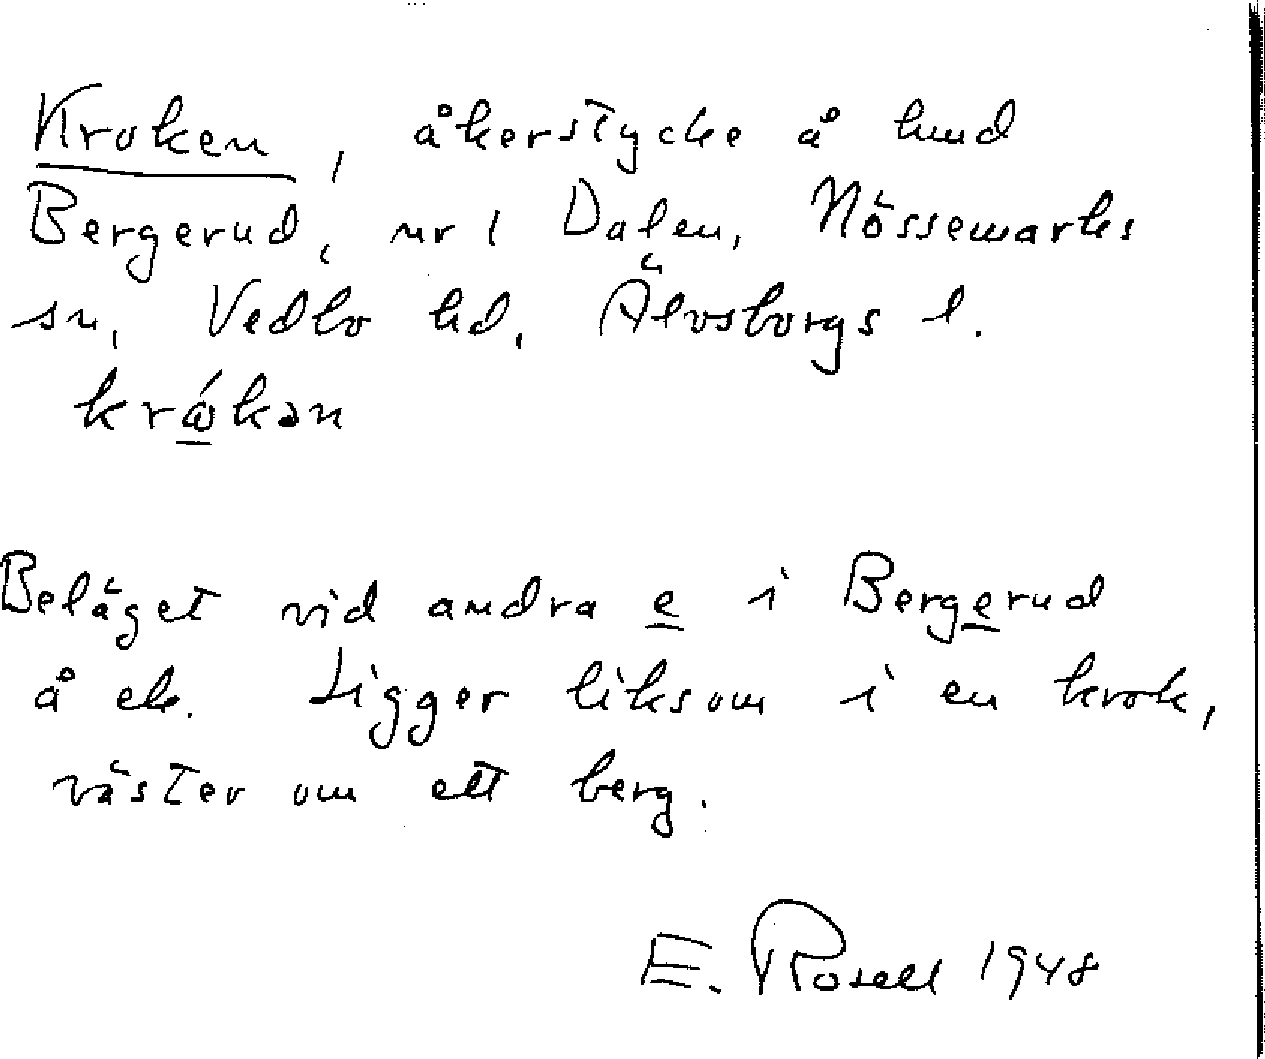 Kroken, åkerstycke å hmd
Bergerud, nr 1 Dalen, Nössemarks
sn, Vedbo hd, Älvsborgs l.
krǿkan
Beläget vid andra e i Bergerud
å ek. Ligger liksom i en krok,
väster om ett berg.
E. Rosell 1948